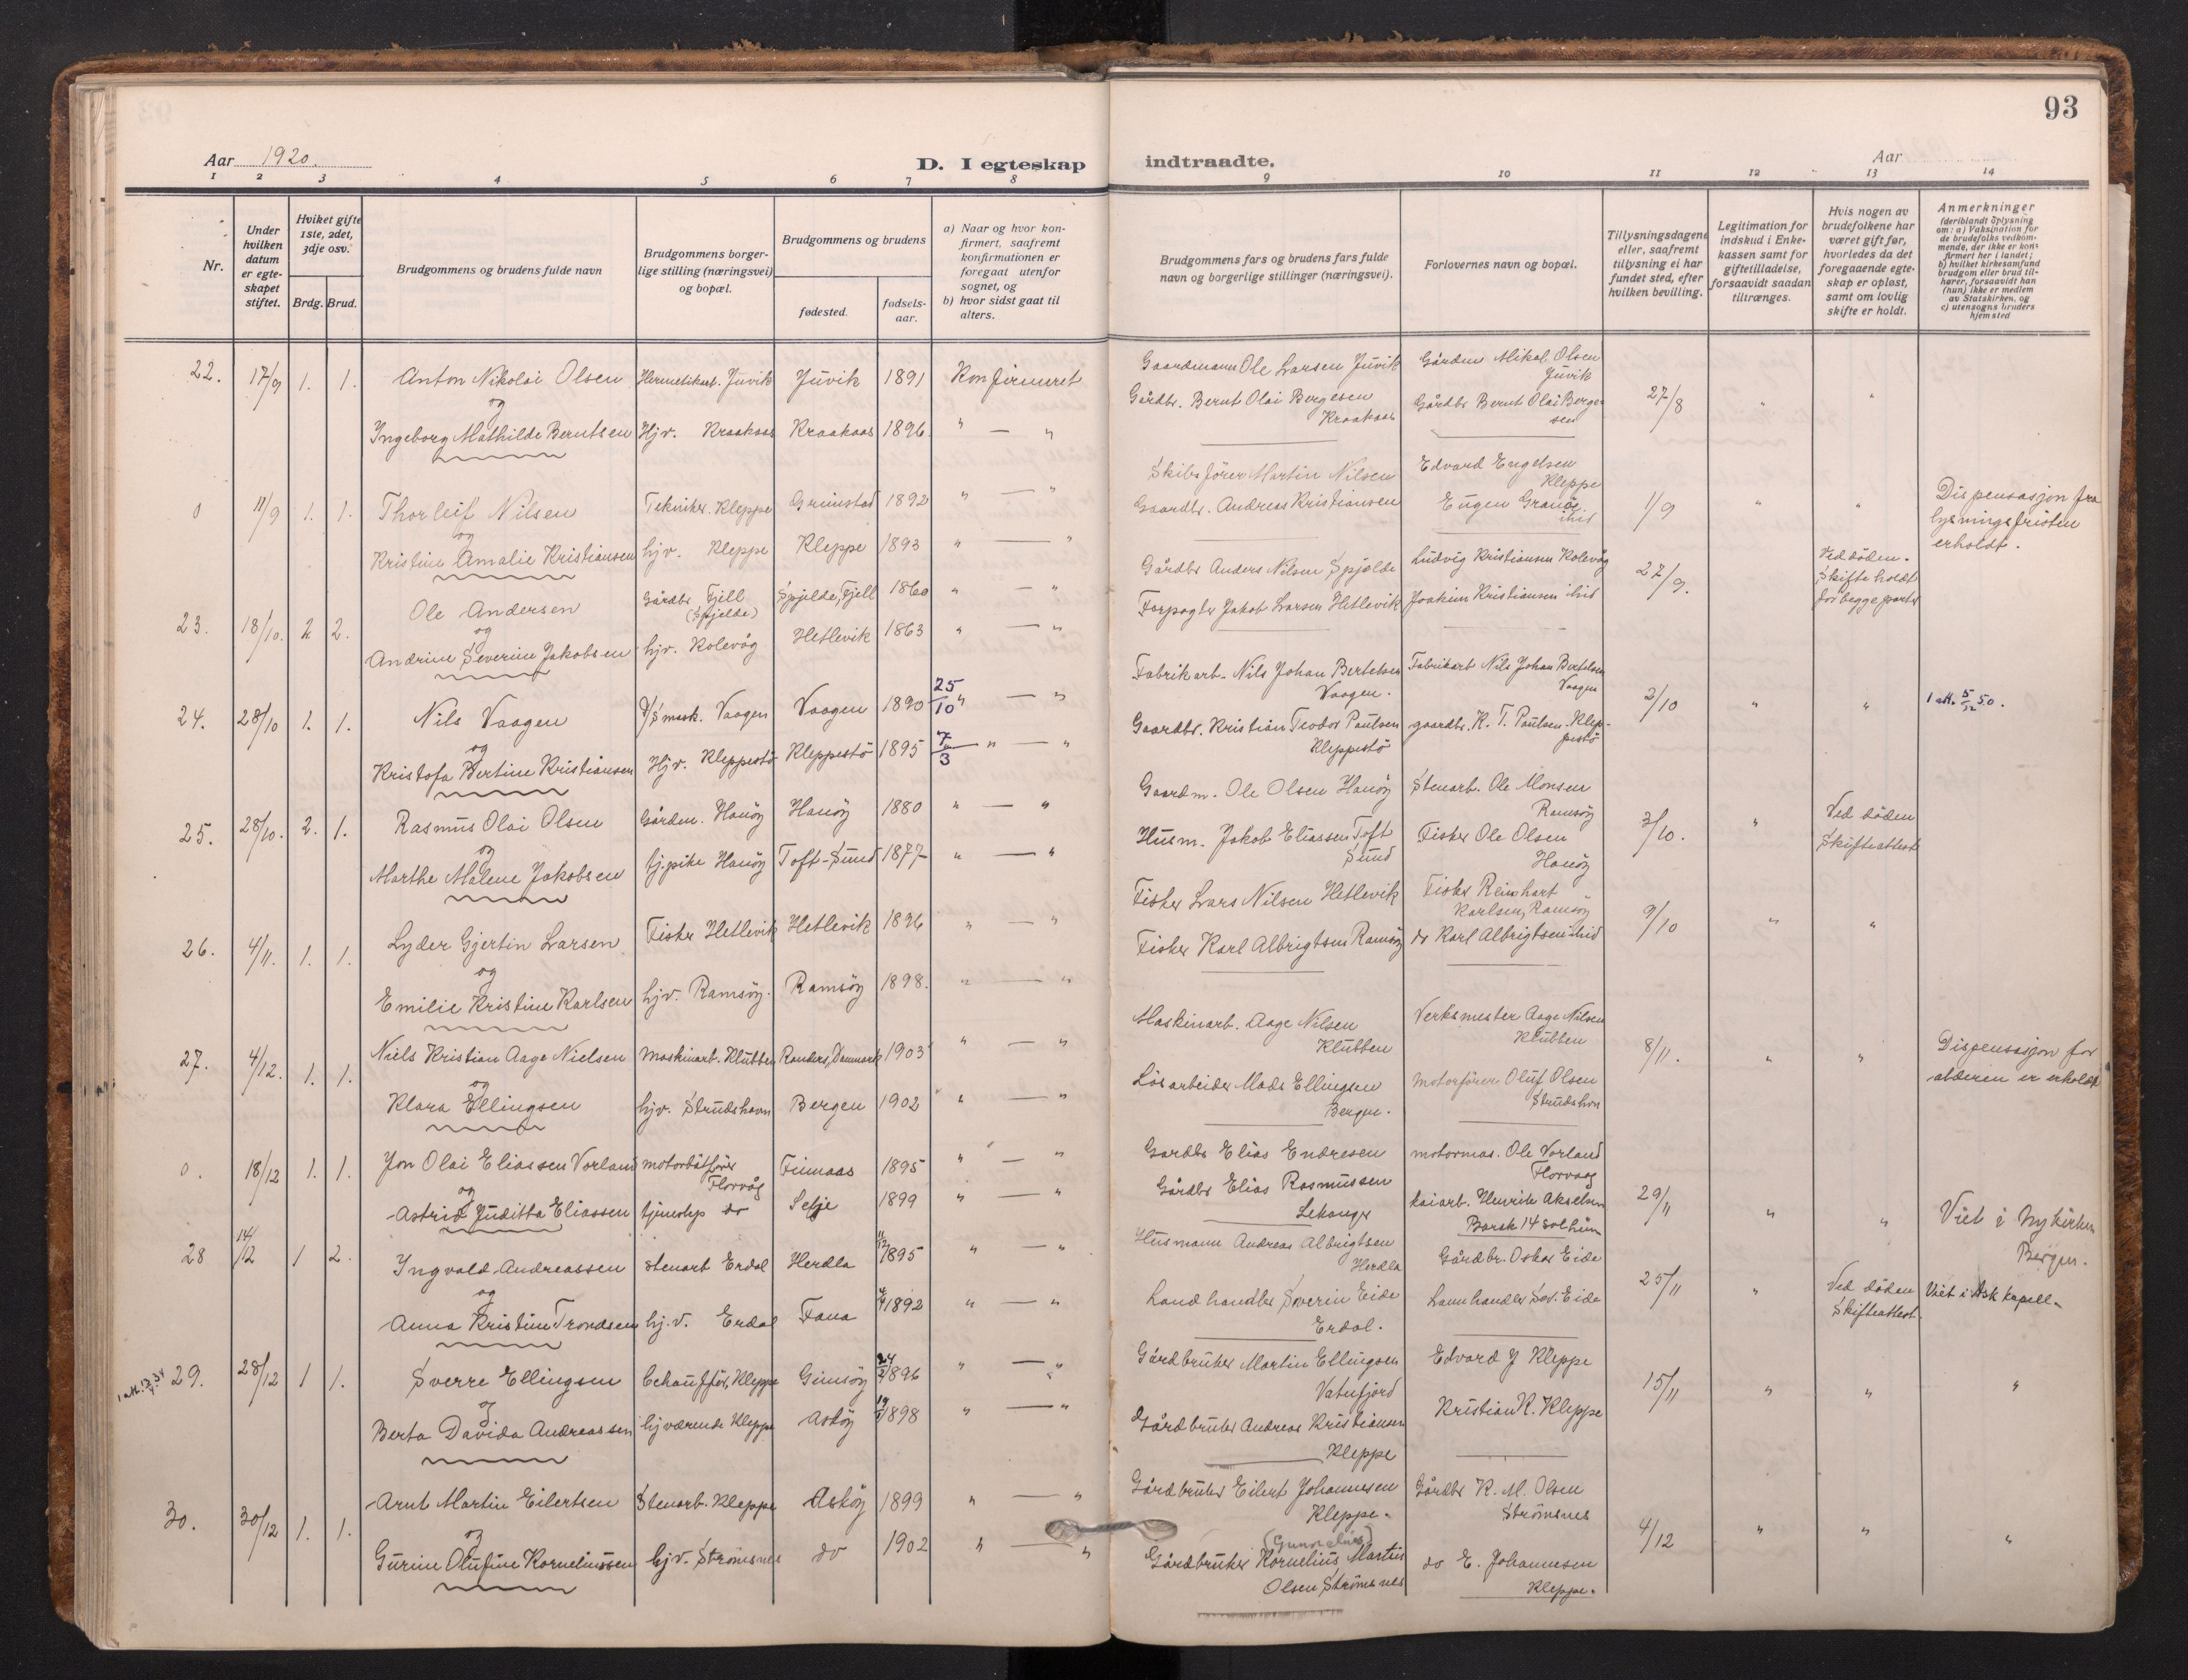 93
Aar 1920.
D. I egteskap indtraadte.
Aar
1 2 3 4 5 6 7 8 9 10 11 12 13 14
Nr.
Under hvilken datum er egteskapet stiftet.
Hviket gifte 1ste, 2det, 3dje osv.
Brdg. Brud.
Brudgommens og brudens fulde navn
Brudgommens borgerlige stilling (næringsvei) og bopæl.
Brudgommens og brudens
fødested.
fødselsaar.
a) Naar og hvor konfirmert, saafremt konfirmationen er foregaat utenfor sognet, og
b) hvor sidst gaat til alters.
Brudgommens fars og brudens fars fulde navn og borgerlige stillinger (næringsvei).
Forlovernes navn og bopæl.
Tillysningsdagene eller, saafremt tillysning ei har fundet sted, efter hvilken bevilling.
Legitimation for indskud i Enkekassen samt for giftetilladelse, forsaavidt saadan tiltrænges.
Hvis nogen av brudefolkene har været gift før, hvorledes da det foregaaende egteskap er opløst, samt om lovlig skifte er holdt.
Anmerkninger
(deriblandt oplysning om: a) Vaksination for de brudefolks vedkommende, der ikke er konfirmert her i landet; b) hvilket kirkesamfund brudgom eller brud tilhører, forsaavidt han (hun) ikke er medlem av Statskirken, og c) utensogns bruders hjemsted
22. 17/9 1. 1. Anton Nikolai Olsen Hermetikarb. Juvik Juvik 1891 Konfirmeret Gaardmann Ole Larsen Juvik Gårdm Mikal Olsen Juvik 27/8 " "
og
Ingeborg Mathilde Berntsen Hjv. Kraakaas Kraakaas 1896. " — " Gårdbr. Bernt Olai Bergesen Kraakaas Gårdbr Bernt Olai Bergesen
0 11/9 1. 1. Thorleif Nilsen Tekniker. Kleppe Grimstad 1892 " — " Skibsfører Martin Nilsen Edvard Engelsen Kleppe 1/9 " " Dispensasjon fra lysningsfristen erholdt.
og
Kristine Amalie Kristiansen hjv. Kleppe Kleppe 1893 " — " Gaardbr. Andreas Kristiansen Eugen Granøe ibid
23. 18/10. 2 2. Ole Andersen Gårdbr Fjell (Spjelde) Spjelde, Fjell 1860 " — " Gårdbr Anders Nilsen Spjelde Ludvig Kristiansen Kolevåg 27/9. Ved døden. Skifte holdt for begge parter
og
Andrine Severine Jakobsen hjv. Kolevåg Hetlevik 1863 " — " Forpagter Jakob Larsen Hetlevik Joakim Kristiansen ibid
24. 28/10 1. 1. Nils Vaagen D/S mask. Vaagen Vaagen 1890 25/10 " — " Fabrikarb. Nils Johan Bertelsen Vaagen. Fabrikarb Nils Johan Bertelsen Vaagen 3/10 " " 1 att. 5/12 50.
og
Kristofa Bertine Kristiansen Hjv. Kleppestø Kleppestø 1895 7/3 " — " Gaardbr. Kristian Teodor Paulsen Kleppestø gaardbr. K. T. Paulsen. Kleppestø
25. 28/10. 2. 1. Rasmus Olai Olsen Gårdm. Hanøy Hanøy 1880 " — " Gaardm. Ole Olsen Hanøy Stenarb. Ole Monsen Ramsøy 3/10. " Ved døden Skifteattest
og
Marthe Malene Jakobsen tj.pike Hanøy Toft-Sund 1877 " — " Husm. Jakob Eliassen Toft Sund Fisker Ole Olsen Hanøy
26. 4/11. 1. 1. Lyder Gjertin Larsen Fisker Hetlevik Hetlevik 1896 " — " Fisker Lars Nilsen Hetlevik Fisker Reinhart Karlsen, Ramsøy 9/10 " "
og
Emilie Kristine Karlsen hjv. Ramsøy. Ramsøy 1898. " — " Fisker Karl Albrigtsen Ramsøy do Karl Albrigtsen ibid
27. 4/12. 1. 1. Niels Kristian Aage Nielsen Maskinarb. Klubben Randers, Danmark 1903 " — " Maskinarb. Aage Nilsen Klubben Verksmester Aage Nilsen Klubben 8/11. " " Dispensasjon for alderen er erholdt
og
Klara Ellingsen hjv. Strudshavn Bergen 1902 " — " Løsarbeider Mads Ellingsen Bergen. Motorfører Oluf Olsen Strudshvn
0. 18/12 1. 1. Jon Olai Eliassen Vorland motorbåtfører Florvåg Finnaas 1895 " — " Gardbr Elias Endresen motormas. Ole Vorland Florvaag 29/11 " " Viet i Nykirken Bergen.
og
Astrid Juditta Eliassen tjenestep do Selje 1899 " — " Gårdbr Elias Rasmussen Lekanger kaiarb. Henrik Akselsen Barsk 14 Solheim
28 14/12 1 2. Ingvald Andreassen stenarb Erdal Herdla 11/12 1895 " — " Husmann Andreas Albrigtsen Herdla Gårdbr. Oskar Eide 25/11 " Ved døden Skifteattest. Viet i Ask kapell.
og
Anna Kristine Trondsen hj.v. Erdal Fana 1892 " — " Landhandler Severin Eide Erdal. Lannhandler Sev. Eide
29. 28/12 1 1. Sverre Ellingsen Schauffør, Kleppe Gimsøy 1896 " — " Gårdbruker Martin Ellingsen Vatnfjord Edvard J Kleppe 15/11 " " "
og
Berta Davida Andreassen hjværende Kleppe Askøy 1898 " — " Gårdbruker Andreas Kristiansen Kleppe Kristian K. Kleppe
30. 30/12 1. 1. Arnt Martin Eilertsen Stenarb. Kleppe Askøy 1899 " — " Gårdbruker Eilert Johannesen Kleppe. Gårdbr K. M. Olsen Strømsnes 4/12 " " "
og
Gurine Olufine Korneliussen hjv. Strømsnes do 1902 " — " Gårdbruker Kornelius Martin Olsen Strømsnes do E. Johannesen Kleppe.